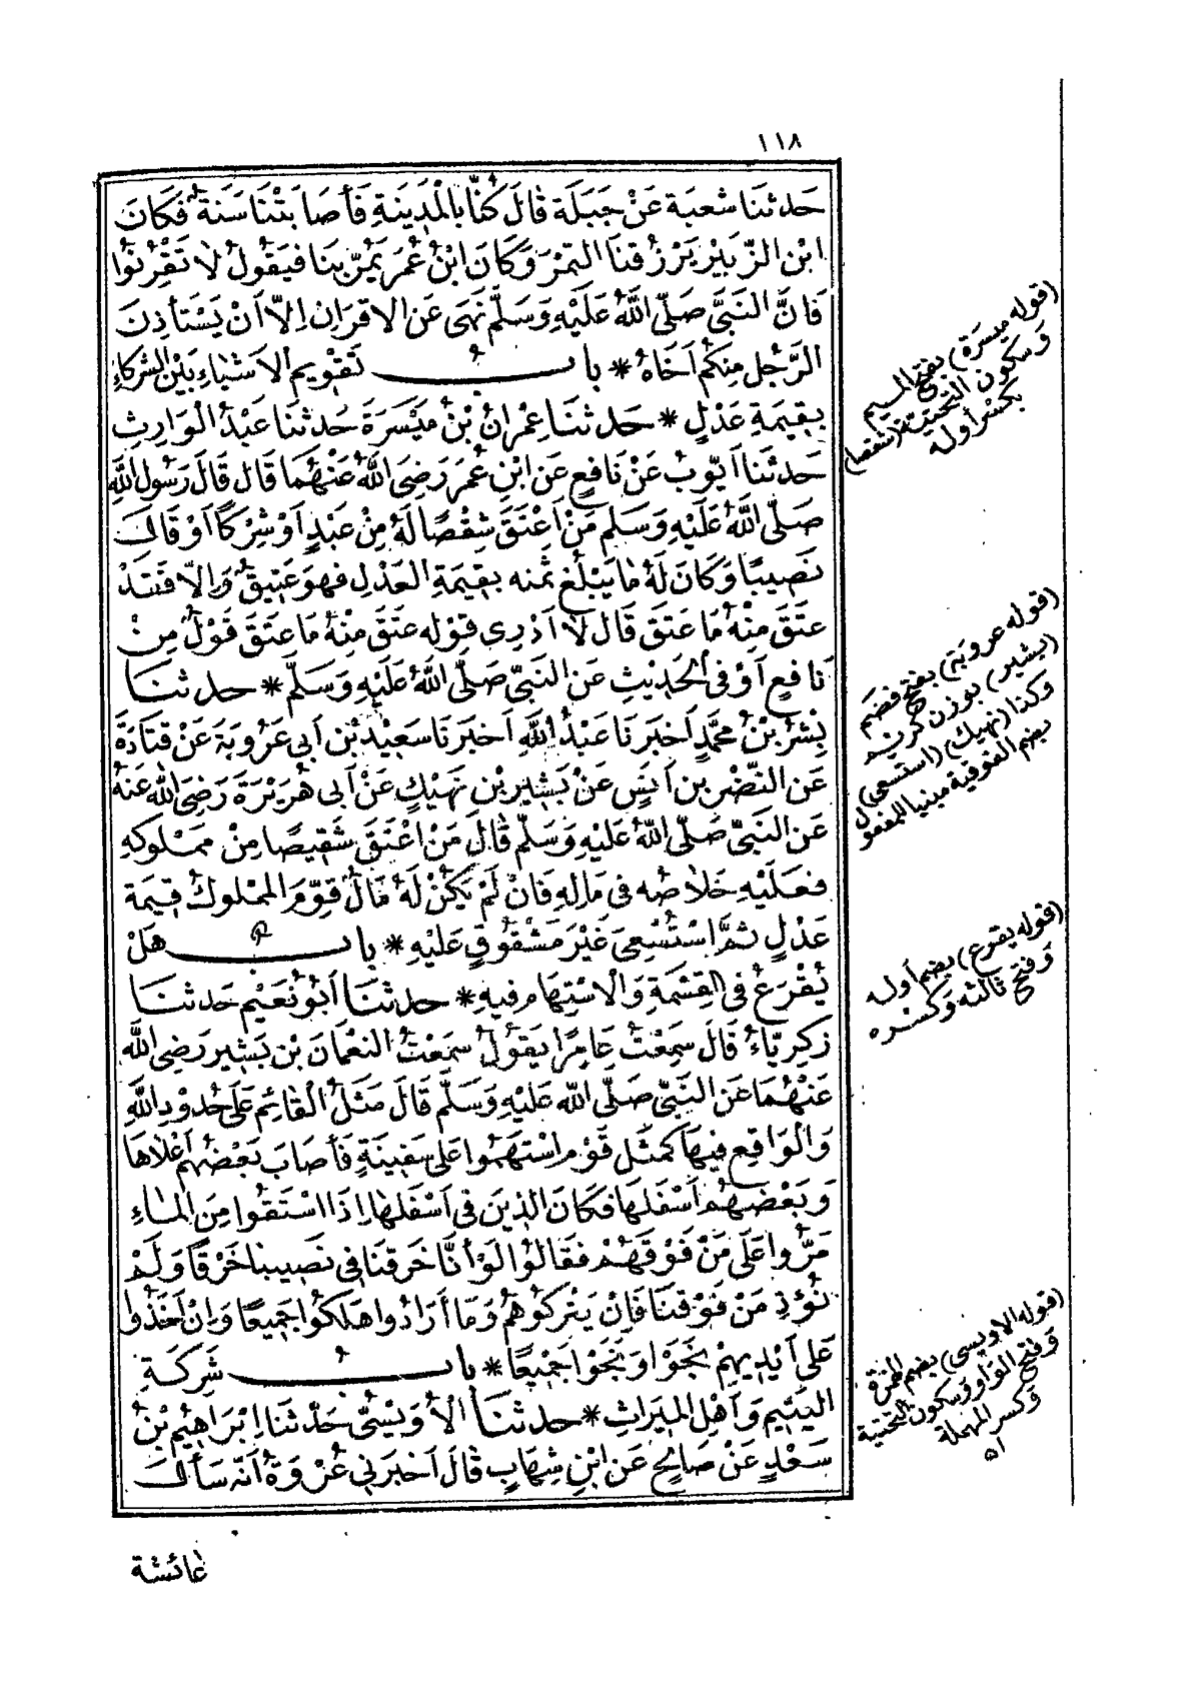 ١١٨
حَدثنَا شعبَة عَنْ جَبَلَة قالَ كنَّا بالْمَدِينَةِ فَأصَابتْنَا سَنَة فَكَانَ
ابْن الزّبَيْر يَرْزُقنَا التمْرَ وَكَانَ ابْنُ عُمَرَ يَمُرّ بنَا فيَقُولُ لاَ تَقْرِنُوا
فَانَّ النَبىَّ صَلّى اللَّهُ عَلَيْهِ وَسَلَّم نَهَى عَن الاقرَان اِلاّ اَنْ يَسْتَأذِنَ
الرَّجُل مِنكُم اَخَاهُ * بابُ تَقْوِيم الاَشيَاءِ بَيْن الشرَكاءِ
بقِيمَةِ عَدْلٍ * حَدثنَا عِمْرانُ بْنُ مَيْسَرَةَ حَدثنَا عَبْدُ الْوَارِثِ
حَدثنَا اَيّوبُ عَنْ نَافِعٍ عَن ابْنِ عُمَرَ رَضِىَ اللَّهُ عَنْهُمَا قَال قَالَ رَسُول اللَّهِ
صَلّى اللَّهُ عَلَيْهِ وَسَلم مَنْ اَعْتَقَ شِقْصًا لَهُ مِنْ عَبْدٍ اَوْ شِرْكًا اَوْ قَالَ
نَصِيبًا وَكَانَ لَهُ مَا يَبْلُغ ثمنه بقِيمَةِ العَدْلِ فهوَ عَتِيقٌ وَاِلاّ فَقَدْ
عتَقَ مِنْهُ مَا عَتَقَ قَالَ لاَ اَدْرِى قَوْله عتَقَ مِنْهُ مَا عتَقَ قَوْلٌ مِنْ
نَافِعٍ اَوْ فى الحَدِيْثِ عَن النَبىّ صَلّى اللَّهُ عَلَيْهِ وَسَلَّم * حدثنَا
بِشْرُ بْنُ محَمَّدٍ اَخبَرَنَا عَبْدُ اللَّهِ اَخبَرَنَا سَعِيْد بْن اَبى عَرُوبَةَ عَنْ قتَادَةَ
عَن النّضْر بن اَنَسٍ عَنْ بَشِيْر بْنِ نَهِيْكٍ عَنْ اَبى هُرَيْرَةَ رَضىَ اللَّه عَنهُ
عَن النَبىّ صَلّى اللَّهُ عَلَيْهِ وَسَلَّم قَالَ مَنْ اَعْتَقَ شَقِيصًا مِنْ مَمْلوكهِ
فعَلَيْهِ خَلاَصُه فى مَالِهِ فَانْ لَمْ يَكُنْ لَهُ مَالٌ قُوِّمَ المَمْلوكُ قِيمَة
عَدْلٍ ثمَّ اسْتُسْعِىَ غَيْرَ مَشْقُوقٍ عَلَيْهِ * بابٌ هَلْ
يُقْرَعُ فى القِسْمَةِ وَالاسْتِهَام فِيهِ * حدثنَا اَبُو نعَيْم حَدثنَا
زكرِيّاءُ قَالَ سَمِعْتُ عَامِرًا يَقُولُ سَمعْتُ النعْمَانَ بْن بَشِيْر رَضىَ اللَّهُ
عَنْهُمَا عَن النَبىّ صَلّى اللَّه عَلَيْهِ وَسَلَّم قَالَ مَثَلُ الْقَائِم عَلَى حُدودِ اللَّهِ
وَالْوَاقِعِ فِيهَا كمَثَل قَوْمٍ اسْتَهَمُوا عَلى سَفِينَةٍ فَأصَابَ بَعْضُهم اَعْلاَهَا
وَبَعْضُهُم اَسْفَلهَا فكَانَ الذِينَ فى اَسْفَلهَا اِذَا اسْتَقَوا مِنَ المَاءِ
مَرُّوا عَلَى مَنْ فَوْقَهُمْ فقَالُوا لَوْ اَنَّا خَرَقنَا فى نَصِيبنَا خَرْقًا وَلَمْ
نُؤذِ مَنْ فَوْقنَا فَاِنْ يَتْركوهُمْ وَمَا اَرَادُوا هَلكُوا جَمِيعًا وَاِنْ اَخَذُوا
عَلى اَيْدِيهِمْ نجَوْا وَنَجَوْا جَمِيْعًا * بابُ شَرِكَةِ
اليَتِيم وَاَهْل المِيرَاثِ * حدثنَا الاُوَيْسىُّ حَدّثنَا اِبْرَاهِيْمُ بْنُ
سَعْدٍ عَنْ صَالِحٍ عَن ابْنِ شِهَابٍ قَالَ اَخبَرَنى عُرْوَةُ اَنّه سَأل
عَائشة
(قوله ميسَرة) بفتح الميم
وَسكون التحتية (شقصا)
بكسْر أوله
(قوله عروبَة) بفتح فضم
(بشير) بوزن كريم
وَكذا (نهيك) (استسعى)
بضم الفوقية مبنيا للمفعول
(قوله يقرع) بضم أوله
وَفتح ثالثه وَكسْره
(قوله الاويسى) بضم الهمزة
وَفتح الوَاو وَسكون التحتية
وَكسر المهملة
اه